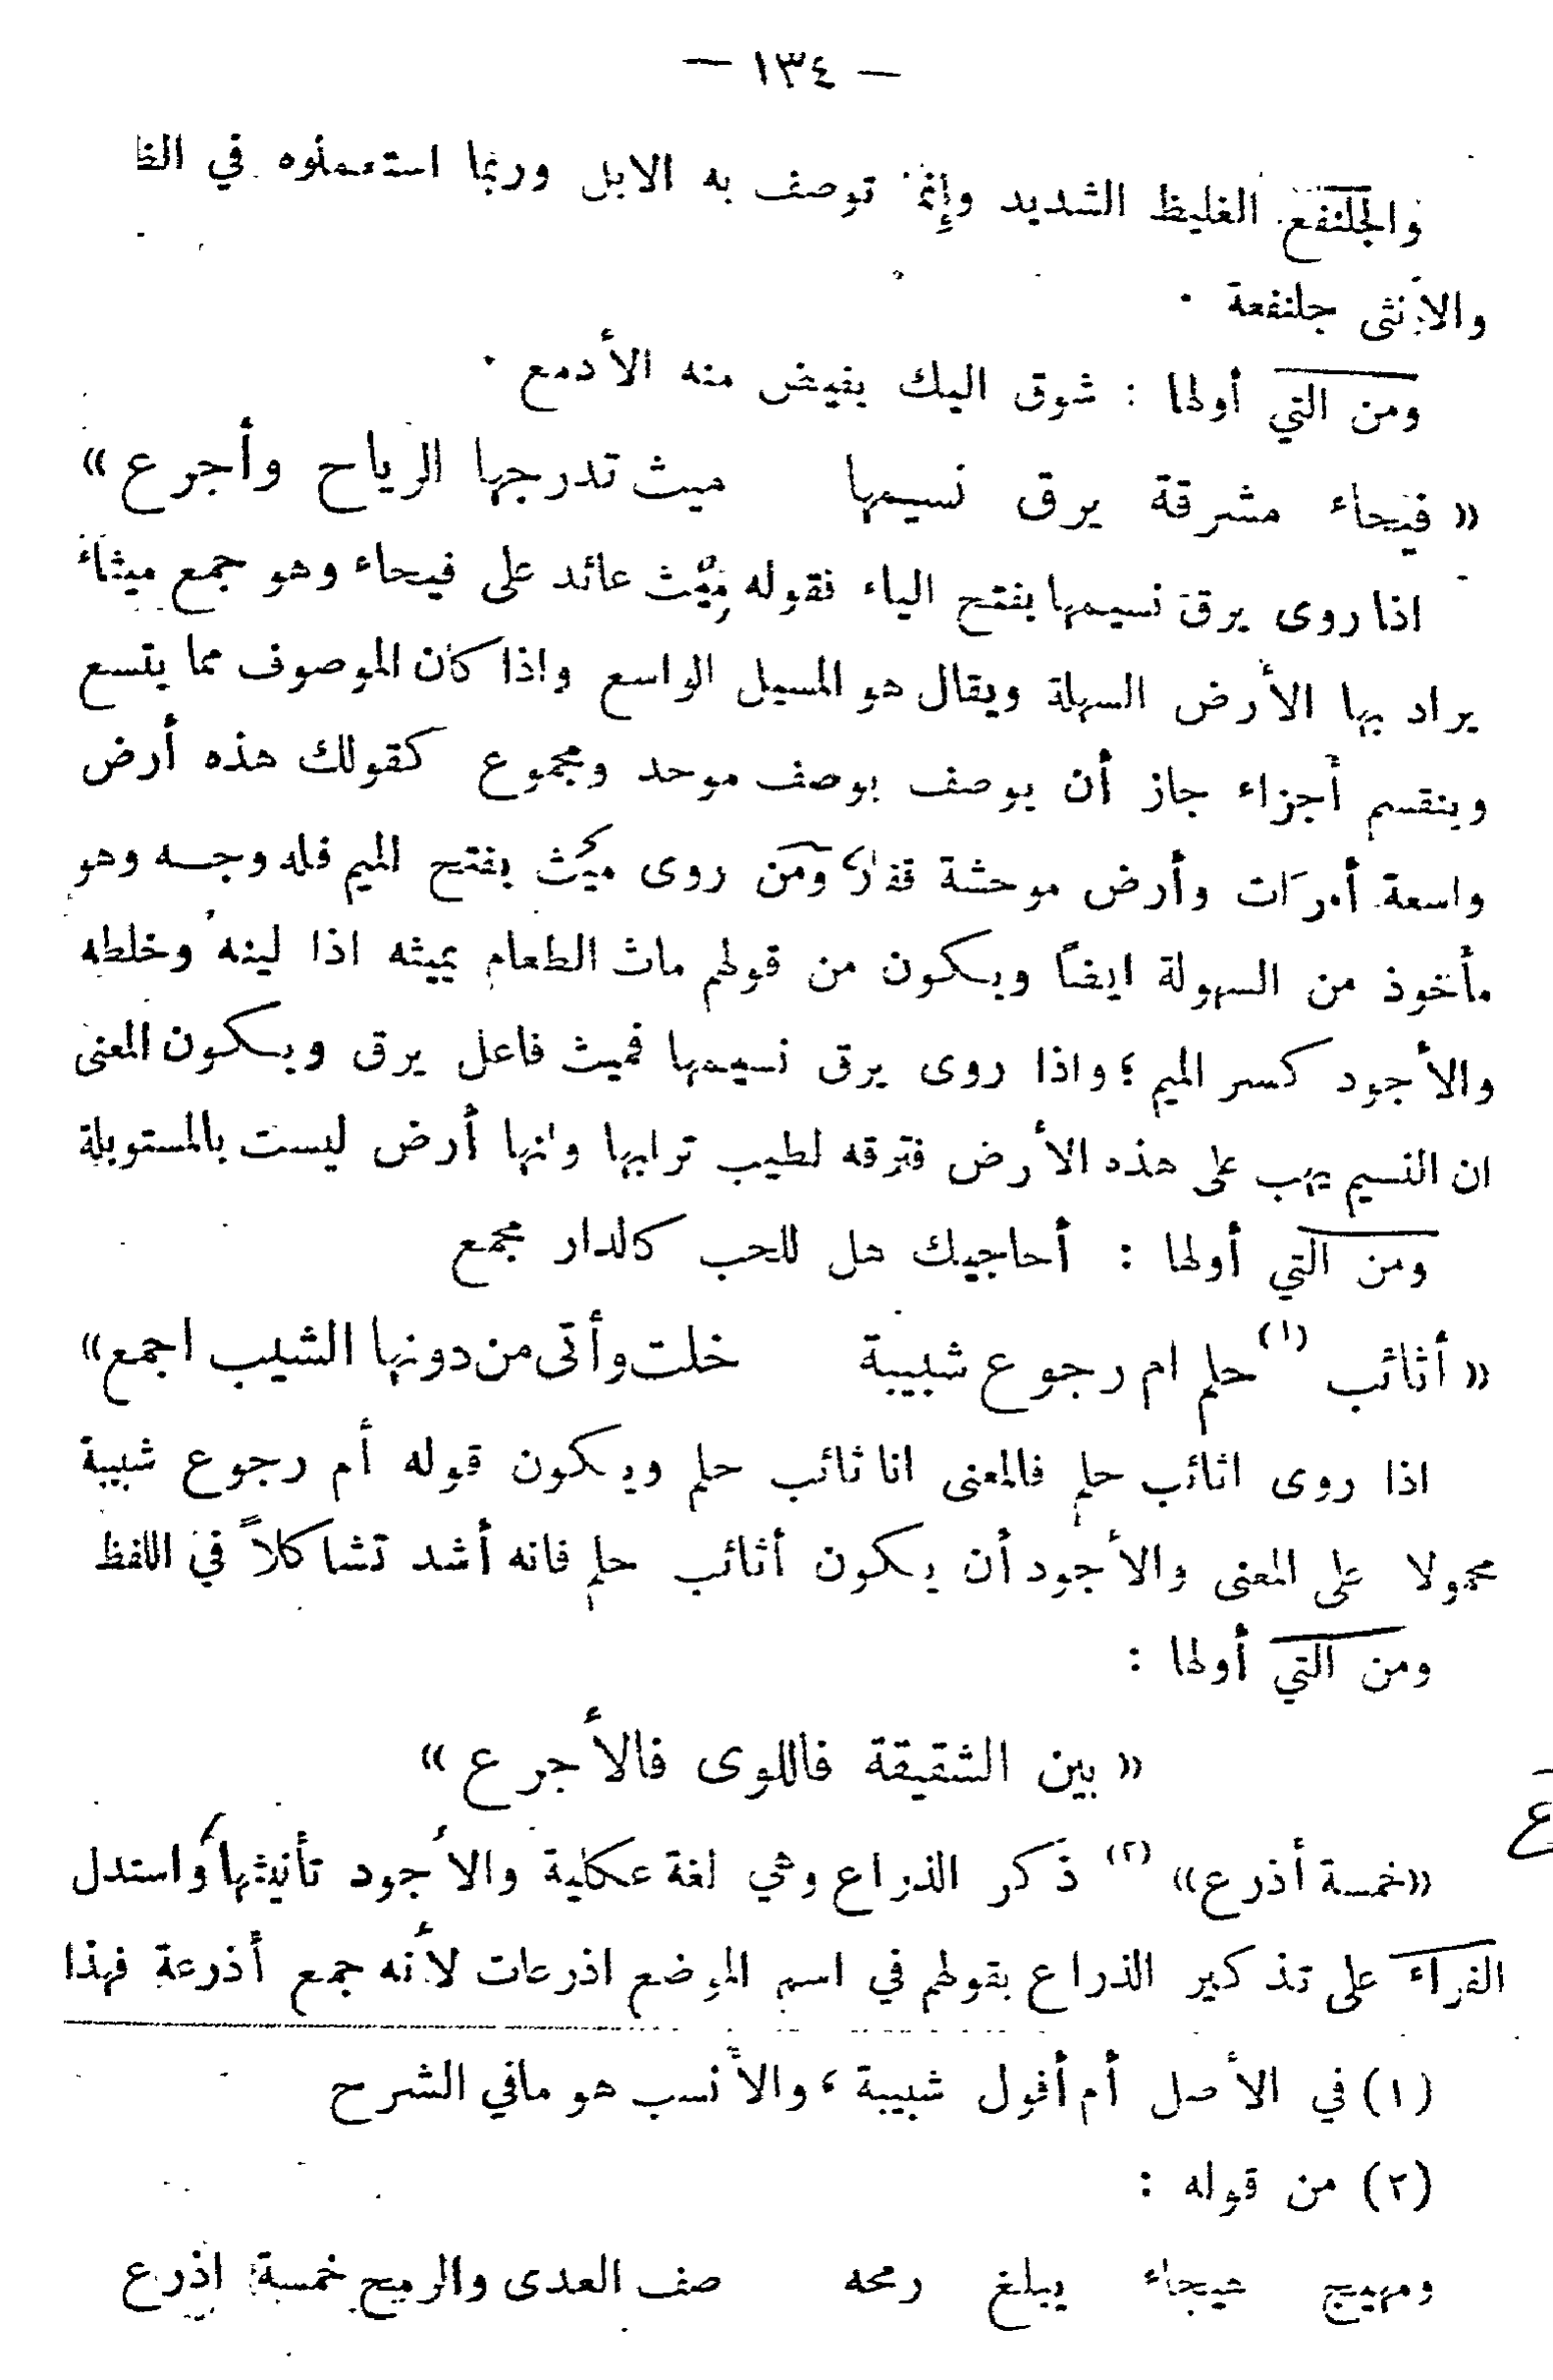 — ١٣٤ —
والجلنفع الغليظ الشديد وإنما توصف به الابل وربما استعملوه في
والأنثى جلنفعة .
ومن التي أولها : شوق اليك يفيض منه الأدمع .
« فيحاء مشرقة يرق نسيمها ميث تدرجها الرياح وأجرع »
اذا روى يرق نسيمها بفتح الياء فقوله مِيْث عائد على فيحاء وهو جمع ميثاء
يراد بها الأرض السهلة ويقال هو المسيل الواسع واذا كان الموصوف مما يتسع
وينقسم أجزاء جاز أن يوصف بوصف موحد ومجموع كقولك هذه أرض
واسعة أمرات وأرض موحشة قفار، ومن روى ميث بفتح الميم فله وجه وهو
مأخوذ من السهولة ايضاً ويكون من قولهم ماث الطعام يميثه اذا لينه وخلطه
والأجود كسر الميم ؛ واذا روى يرق نسيمها فميث فاعل يرق ويكون المعنى
ان النسيم يهب على هذه الأرض فترقه لطيب ترابها وانها أرض ليست بالمستوبلة
ومن التي أولها : أحاجيك هل للحب كالدار مجمع
« أثائب (١) حلم ام رجوع شبيبة خلت وأتى من دونها الشيب اجمع»
اذا روى اثائب حلم فالمعنى انا ثائب حلم ويكون قوله أم رجوع شبيبة
محمولا على المعنى والأجود أن يكون أثائب حلم فانه أشد تشاكلاً في اللفظ
ومن التي أولها :
« بين الشقيقة فاللوى فالأجرع »
«خمسة أذرع» (٢) ذكر الذراع وهي لغة عكلية والأجود تأنيثها، واستدل
الفراء على تذكير الذراع بقولهم في اسم الموضع اذرعات لأنه جمع أذرعة فهذا
(١) في الأصل أم أقول شبيبة ، والأنسب هو مافي الشرح
(٢) من قوله :
ومهيج هيجاء يبلغ رمحه صف العدى والرمح خمسة اذرع